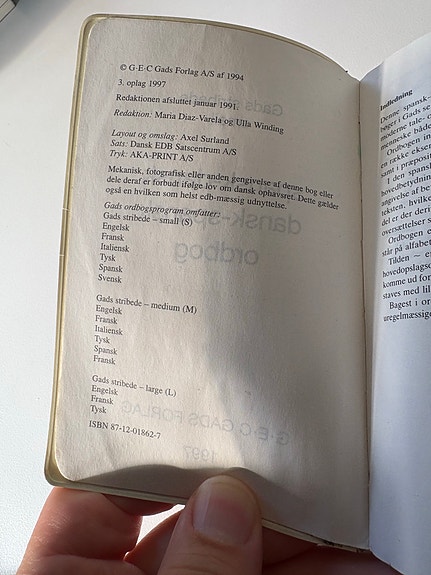 © G·E·C Gads Forlag A/S af 1994
3. oplag 1997
Redaktionen afsluttet januar 1991.
Redaktion: Maria Diaz-Varela og Ulla Winding
Layout og omslag: Axel Surland
Sats: Dansk EDB Satscentrum A/S
Tryk: AKA-PRINT A/S
Mekanisk, fotografisk eller anden gengivelse af denne bog eller
dele deraf er forbudt ifølge lov om dansk ophavsret. Dette gælder
også en hvilken som helst edb-mæssig udnyttelse.
Gads ordbogsprogram omfatter:
Gads stribede – small (S)
Engelsk
Fransk
Italiensk
Tysk
Spansk
Svensk
Gads stribede – medium (M)
Engelsk
Fransk
Italiensk
Tysk
Spansk
Fransk
Gads stribede – large (L)
Engelsk
Fransk
Tysk
ISBN 87-12-01862-7
Indledning
Denne spansk-
bøger i Gads se
moderne tale-
menneske både
Ordbogen in
en række ekser
samt i præposit
I den spansk
hovedbetydnin
angivelse af be
teksten, hvilke
del er der deri
oversættelser s
Ordbogen e
står på alfabet
Tilden ~ e
hovedopslagsc
komme ud for
staves med lil
Bagest i or
uregelmæssige